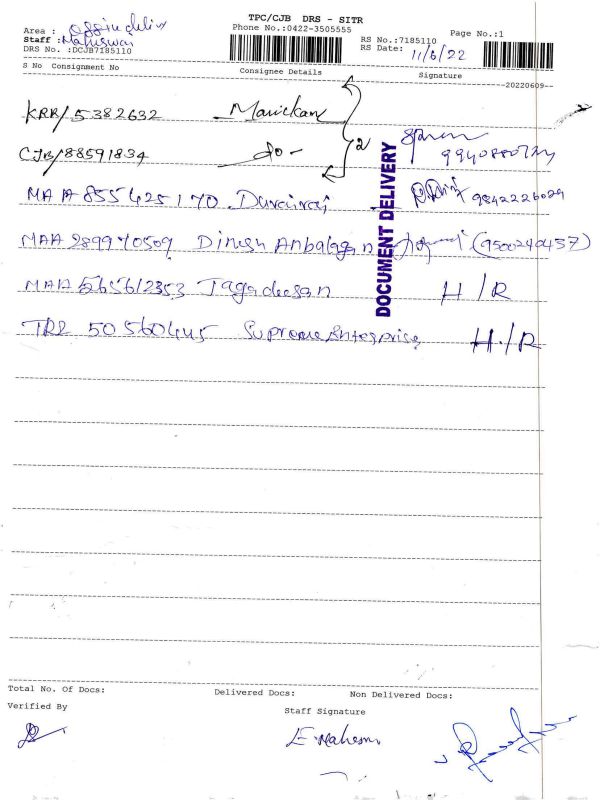 TPC/CJB DRS - SITR
Phone No.:0422-3505555
Area : office deliv
Staff :
DRS No. :DCJB7185110
RS No.:7185110
RS Date: 11/6/22
Page No.:1
--20220609--
S No Consignment No Consignee Details Signature
KRR/5382632 Manickam
CJB/88591834 - do - 2
9940880
MAA 855425170 Durairaj 9842226029
MAA 289970509 Dinesh Anbalagan (9500240457)
MAA 565612353 Jagadeesan H/R
TRR 50560445 Supreme Enterprise H/R
DOCUMENT DELIVERY
Total No. Of Docs: Delivered Docs: Non Delivered Docs:
Verified By Staff Signature